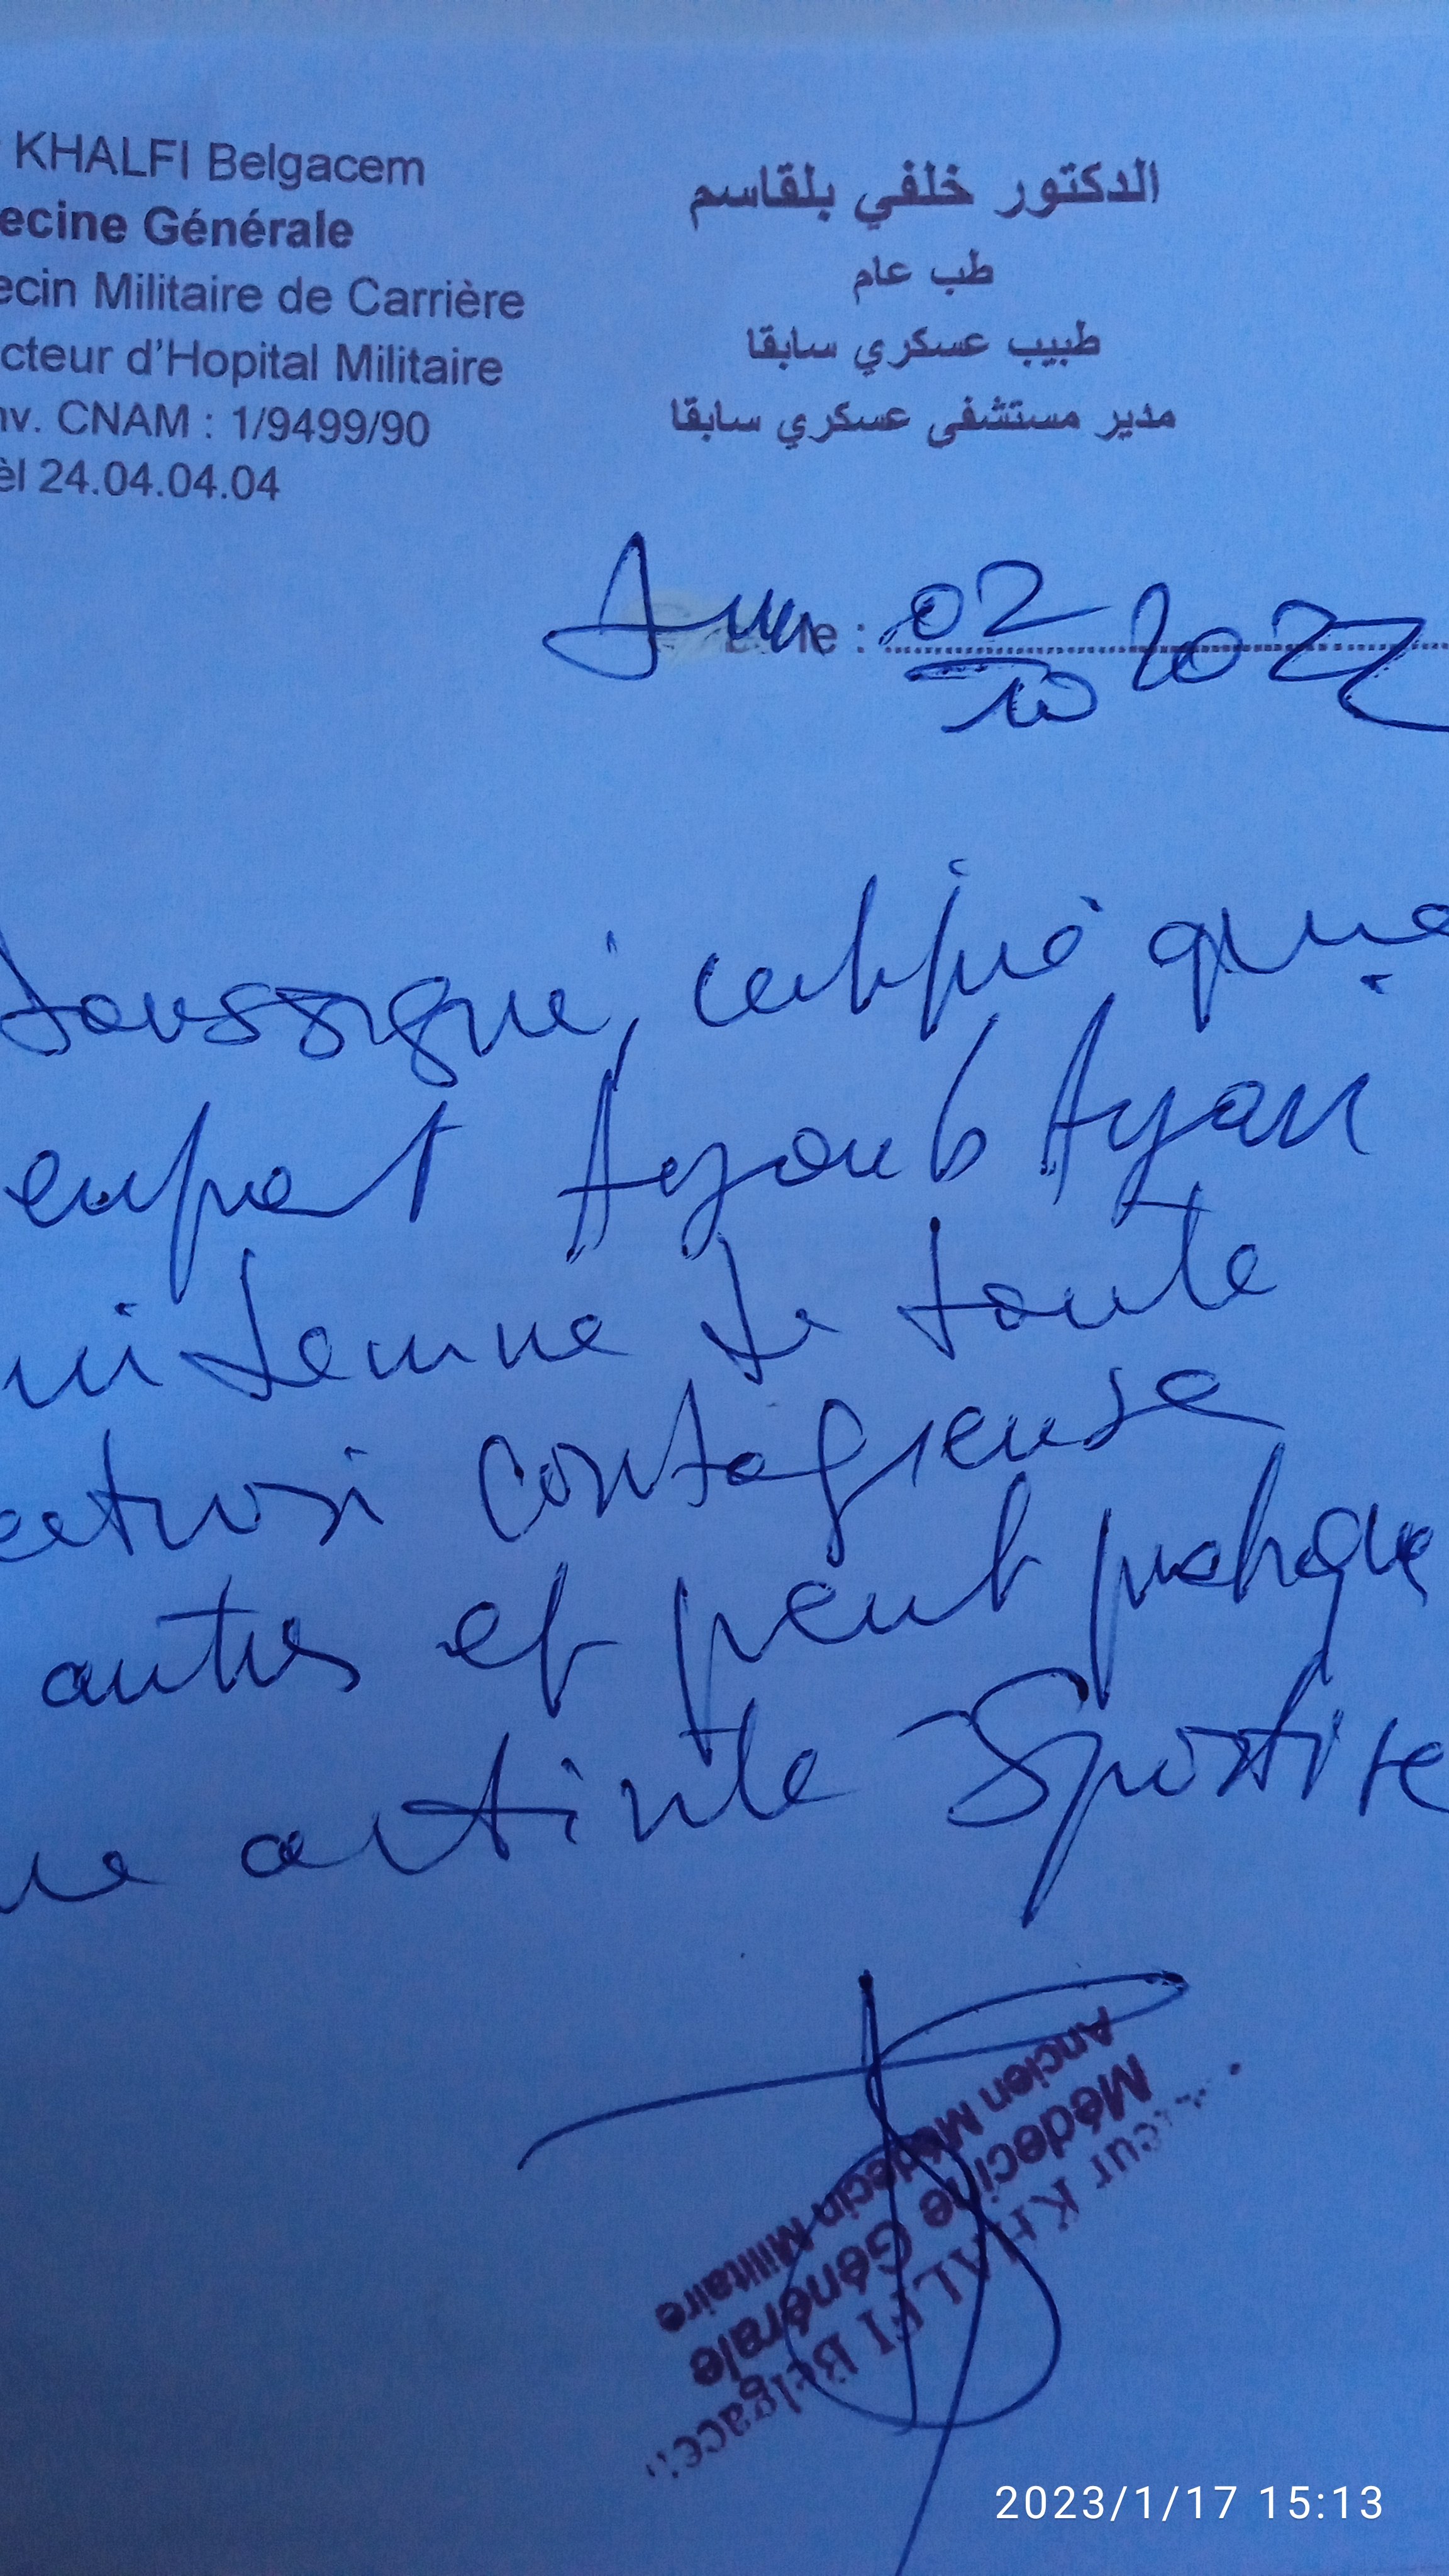 KHALFI Belgacem
ecine Générale
ecin Militaire de Carrière
cteur d'Hopital Militaire
nv. CNAM : 1/9499/90
èl 24.04.04.04
الدكتور خلفي بلقاسم
طب عام
طبيب عسكري سابقا
مدير مستشفى عسكري سابقا
le : 02/10 2022
soussigné, certifie que
enfant Ayoub Ayari
indemne de toute
contagieuse
autres et peut pratique
activité Sportive
eur KHALFI Belgacem
Médecine Générale
Ancien Médecin Militaire
2023/1/17 15:13